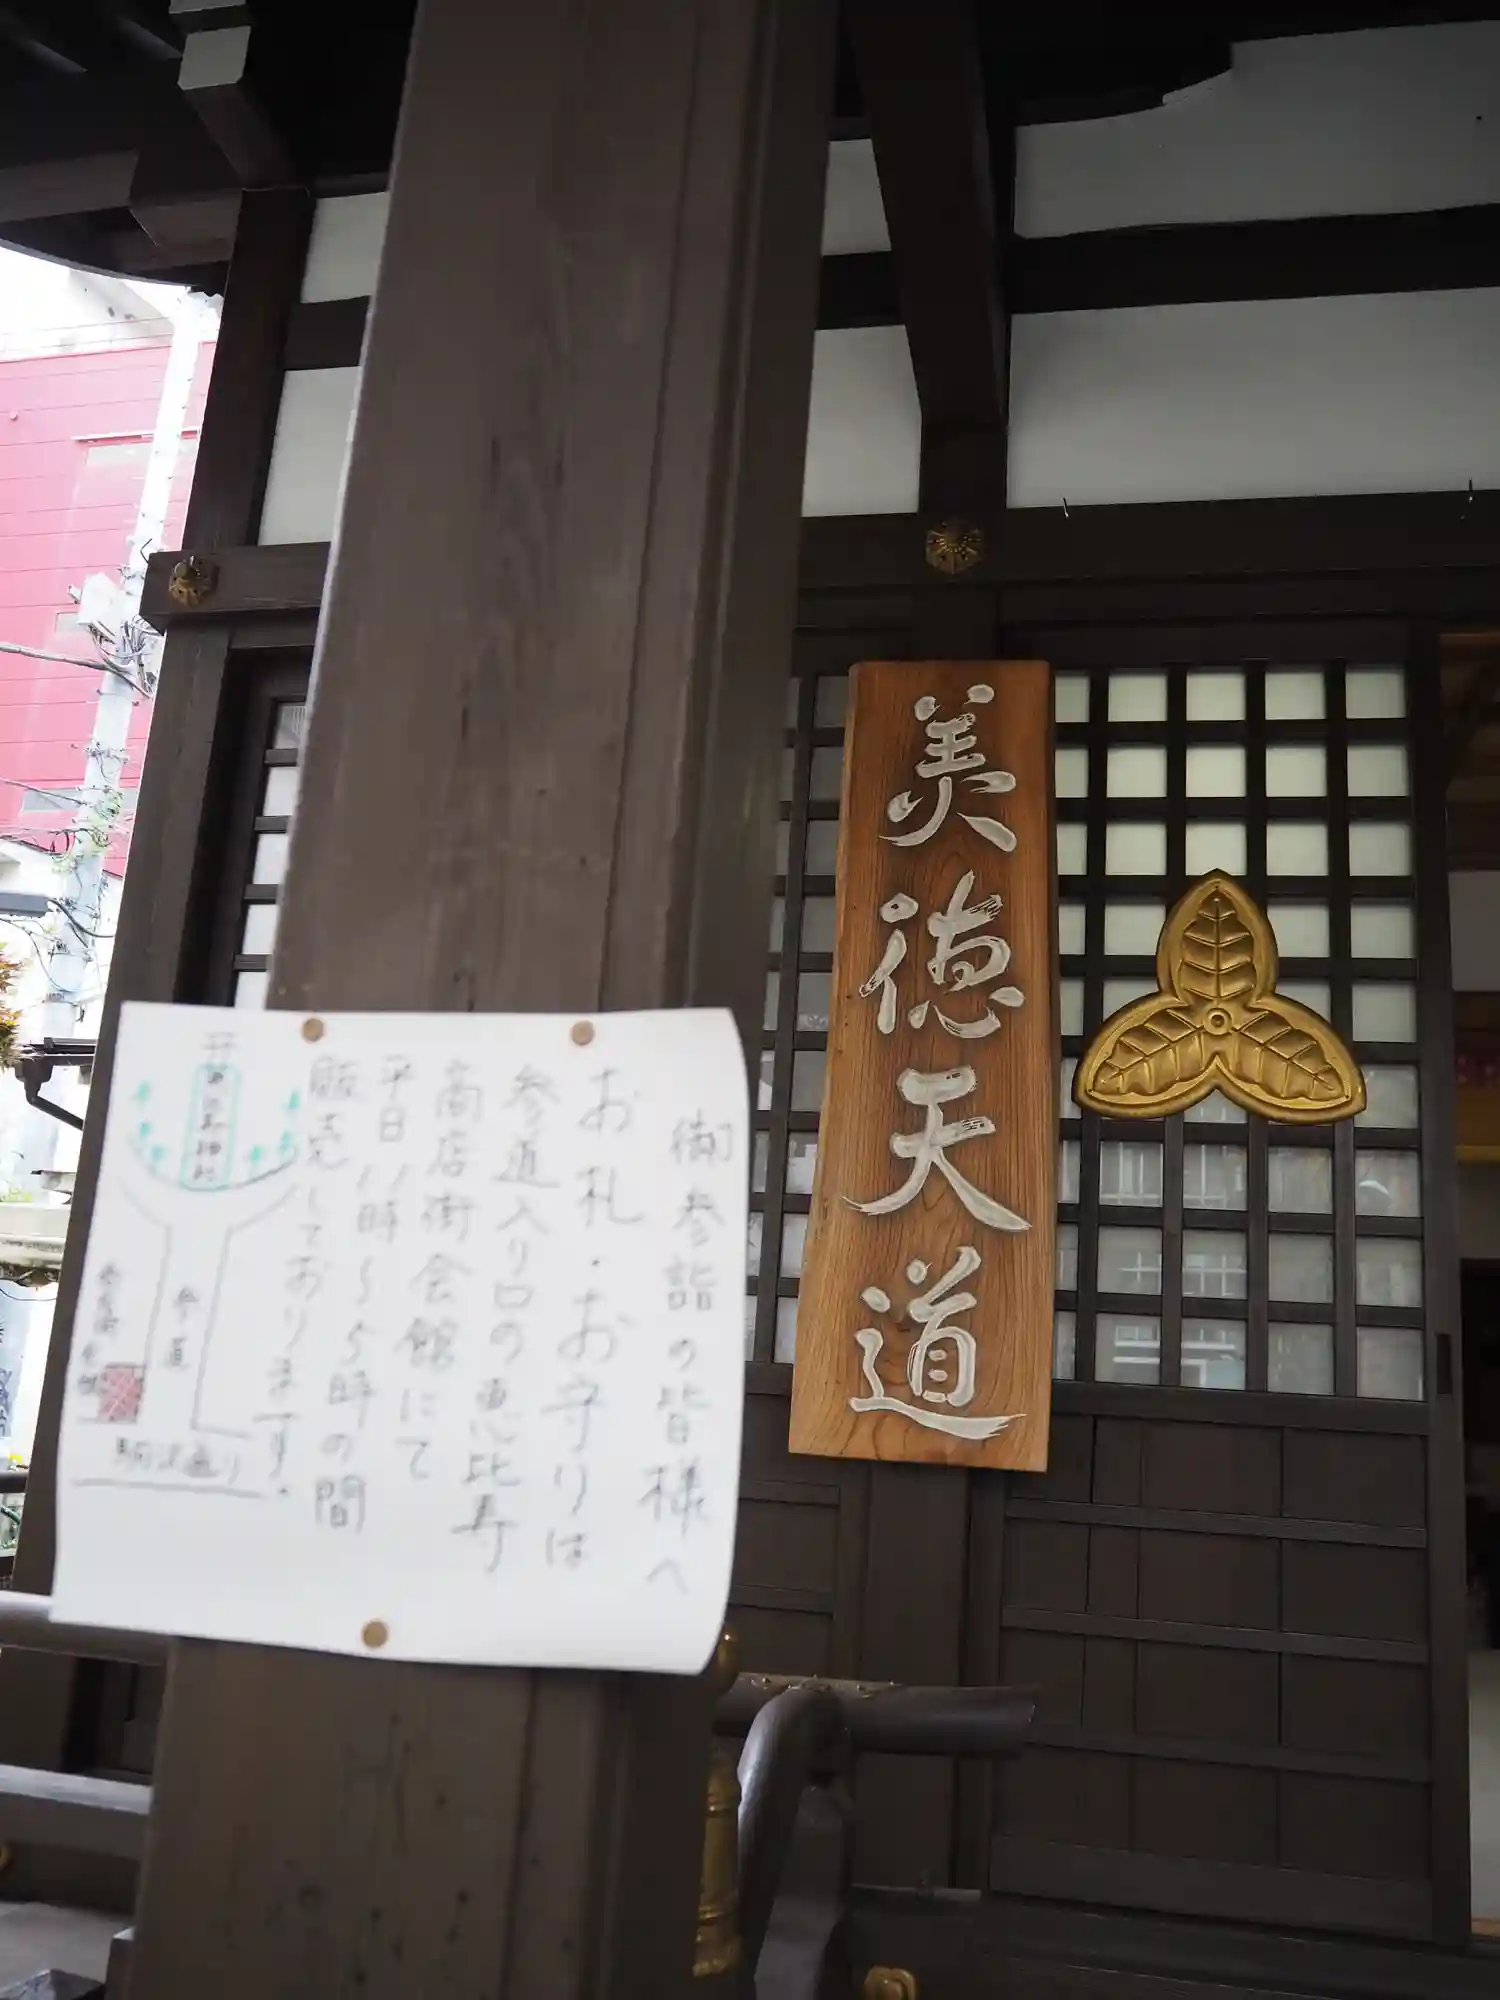 美徳天道
御参詣の皆様へ
お札・お守りは
参道入り口の恵比寿
商店街会館にて
平日11時~5時の間
販売しております。
参道
駒沢通り